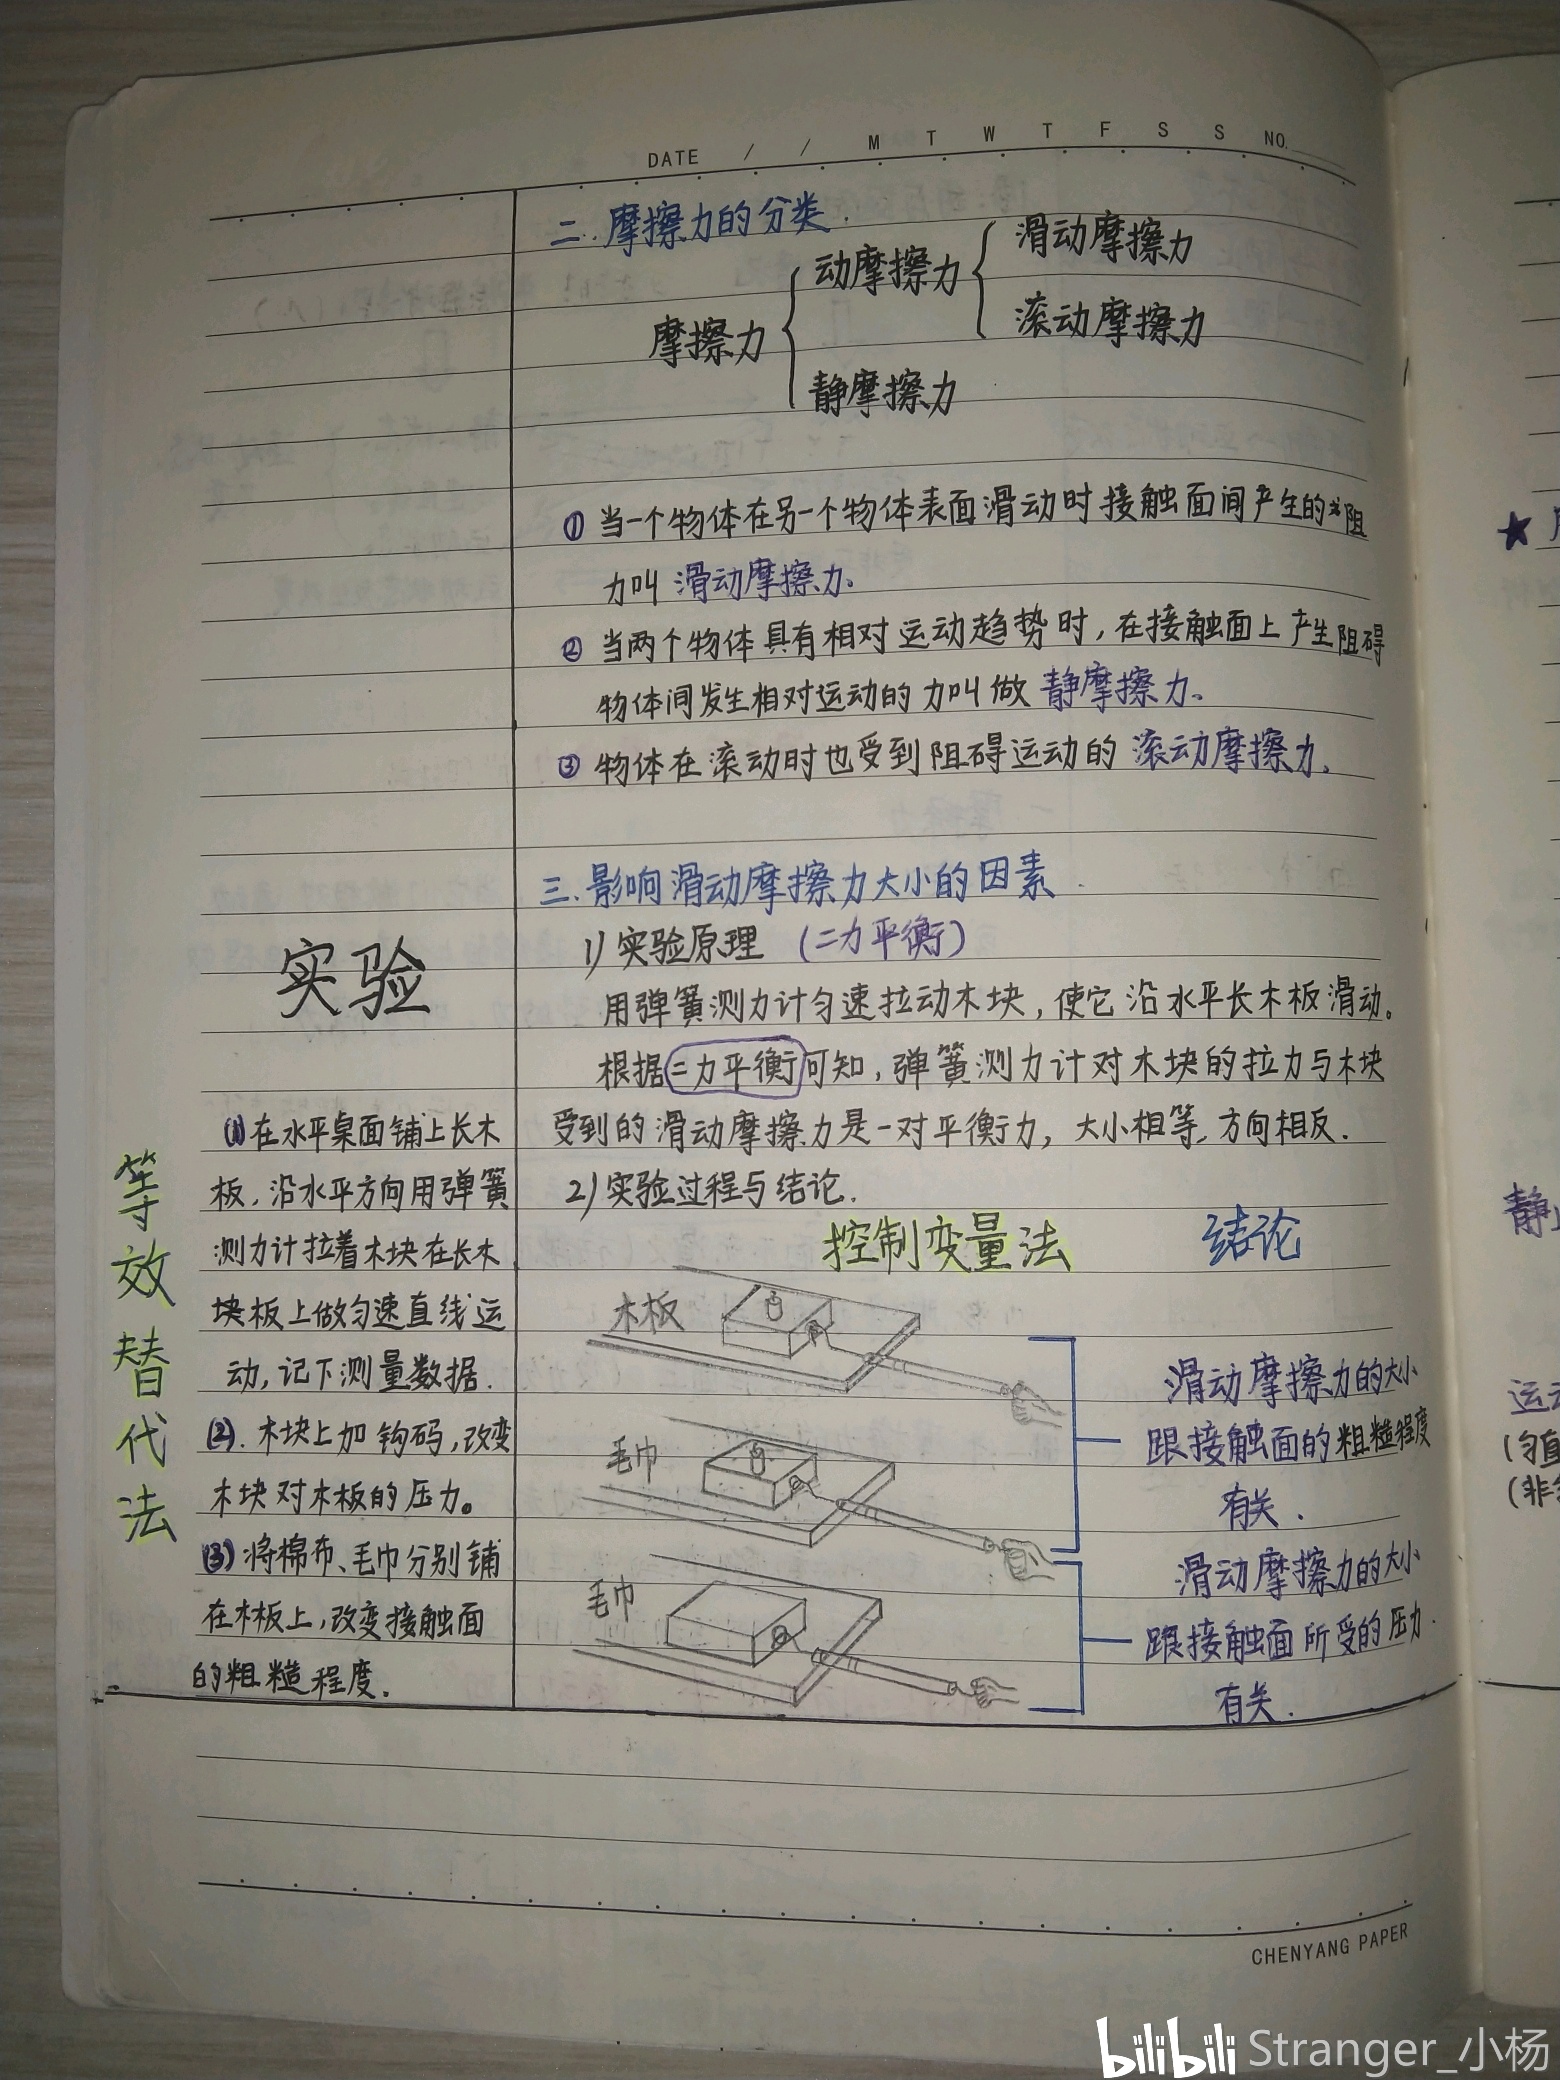 DATE / / M T W T F S S NO.
二.摩擦力的分类.
摩擦力
动摩擦力
滑动摩擦力
滚动摩擦力
静摩擦力
① 当一个物体在另一个物体表面滑动时接触面间产生的阻
力叫 滑动摩擦力.
② 当两个物体具有相对运动趋势时,在接触面上产生阻碍
物体间发生相对运动的力叫做 静摩擦力.
③ 物体在滚动时也受到阻碍运动的 滚动摩擦力.
三.影响滑动摩擦力大小的因素.
1) 实验原理 (二力平衡)
用弹簧测力计匀速拉动木块,使它沿水平长木板滑动。
根据二力平衡可知,弹簧测力计对木块的拉力与木块
受到的滑动摩擦力是一对平衡力,大小相等,方向相反.
2) 实验过程与结论.
控制变量法
结论
木板
毛巾
毛巾
滑动摩擦力的大小
跟接触面的粗糙程度
有关.
滑动摩擦力的大小
跟接触面所受的压力
有关.
实验
等效替代法
(1)在水平桌面铺上长木
板,沿水平方向用弹簧
测力计拉着木块在长木
块板上做匀速直线运
动,记下测量数据.
(2).木块上加钩码,改变
木块对木板的压力。
(3)将棉布、毛巾分别铺
在木板上,改变接触面
的粗糙程度.
CHENYANG PAPER
★
静
运
(匀直
(非
bilibili Stranger_小杨